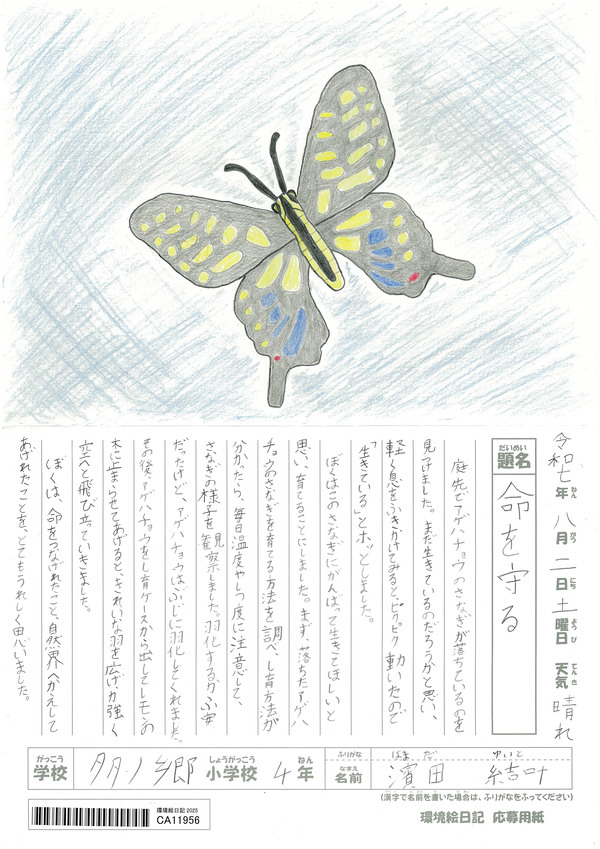 令和七年八月二日土曜日 天気 晴れ
ねん がつ にち ようび てんき
だいめい
題名 命を守る
庭先でアゲハチョウのさなぎが落ちているのを
見つけました。まだ生きているのだろうかと思い、
軽く息をふきかけてみると、ピクピク動いたので
「生きている」とホッとしました。
ぼくはこのさなぎにがんばって生きてほしいと
思い、育てることにしました。まず、落ちたアゲハ
チョウのさなぎを育てる方法を調べ、し育方法が
分かったら、毎日温度やしつ度に注意して、
さなぎの様子を観察しました。羽化するか不安
だったけど、アゲハチョウはぶじに羽化してくれました。
その後、アゲハチョウをし育ケースから出してレモンの
木に止まらせてあげると、きれいな羽を広げ力強く
空へと飛び立っていきました。
ぼくは、命をつなげれたこと、自然界へかえして
あげれたことを、とてもうれしく思いました。
がっこう しょうがっこう ねん
学校 多々ノ郷 小学校 4年
ふりがな はまだ ゆいと
なまえ
名前 濱田 結叶
(漢字で名前を書いた場合は、ふりがなをふってください)
環境絵日記 2025
CA11956
環境絵日記 応募用紙